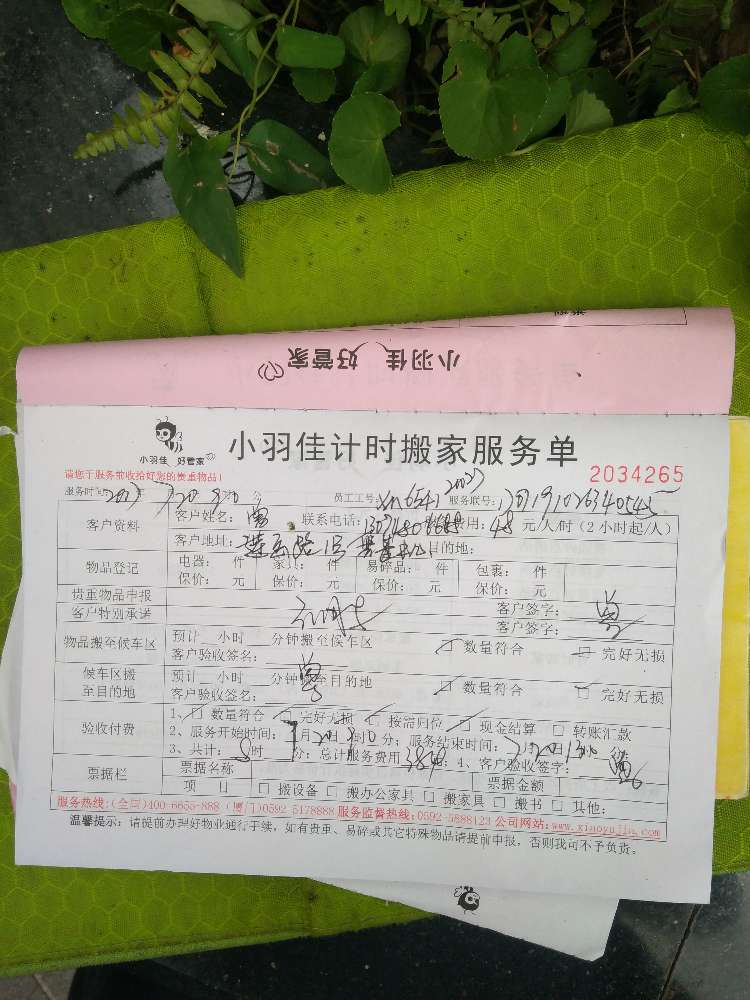 小羽佳 好管家
小羽佳 好管家
小羽佳计时搬家服务单
请您于服务前收拾好您的贵重物品!
2034265
服务时间: 分 员工工号: 服务联号:
客户资料 客户姓名: 曾 联系电话: 费用: 48 元/人/时(2小时起/人)
客户地址: 目的地:
物品登记 电器: 件 家具: 件 易碎品: 件 包裹: 件
保价: 元 保价: 元 保价: 元 保价: 元
贵重物品申报 客户签字: 曾
客户特别承诺 客户签字:
物品搬至候车区 预计 小时 分钟搬至候车区 数量符合 完好无损
客户验收签名:
候车区搬至目的地 预计 小时 分钟搬至目的地 数量符合 完好无损
客户验收签名: 曾
验收付费 1、 数量符合 完好无损 按需归位 现金结算 转账汇款
2、服务开始时间: 7月20日 分; 服务结束时间: 7月20日 分
3、共计: 8时 分; 总计服务费用 384元; 4、客户验收签字: 曾
票据栏 票据名称 票据金额
项 目 搬设备 搬办公家具 搬家具 搬书 其他:
服务热线:(全国)400-6655-888 (厦门)0592-5178888 服务监督热线:0592-5888123 公司网站:www.xiaoyujia.com
温馨提示:请提前办理好物业通行手续,如有贵重、易碎或其它特殊物品请提前申报,否则我司不予负责。